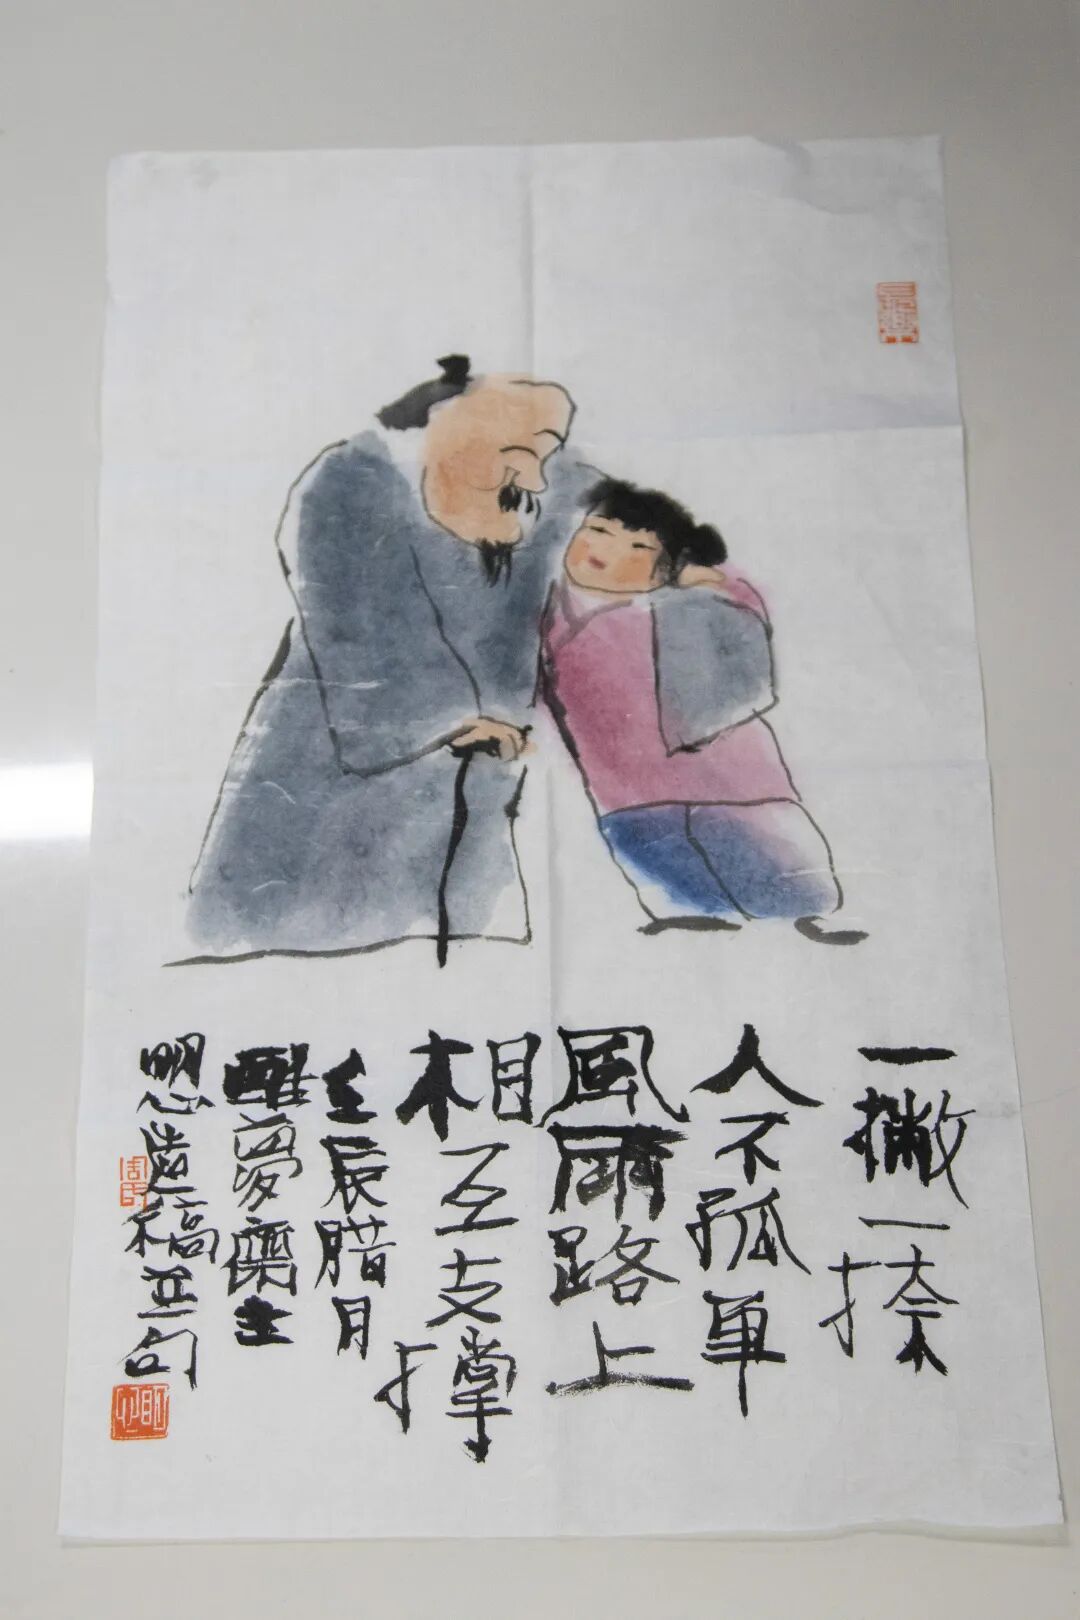 一撇一捺
人不孤单
風雨路上
相互支撑
壬辰腊月
夢 主
稿並句